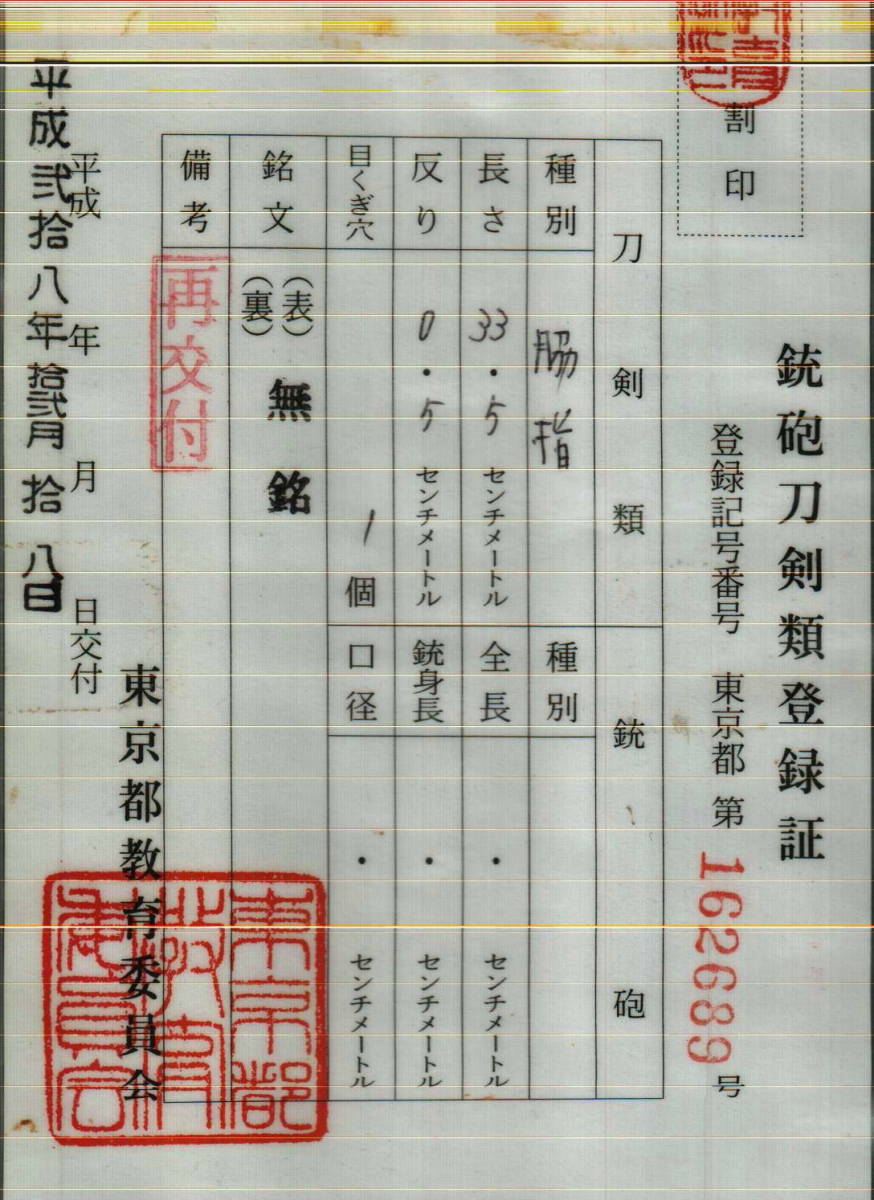 銃砲刀剣類登録証
割印
登録記号番号 東京都 第 162689 号
刀剣類
銃砲
種別 脇指
種別
長さ 33・5 センチメートル
全長 ・ センチメートル
反り 0・5 センチメートル
銃身長 ・ センチメートル
目くぎ穴 1 個
口径 ・ センチメートル
銘文 (表) 無銘
(裏)
備考 再交付
東京都教育委員会
東京都
教育
委員会
平成 年 月 日交付
平成弐拾八年拾弐月拾八日